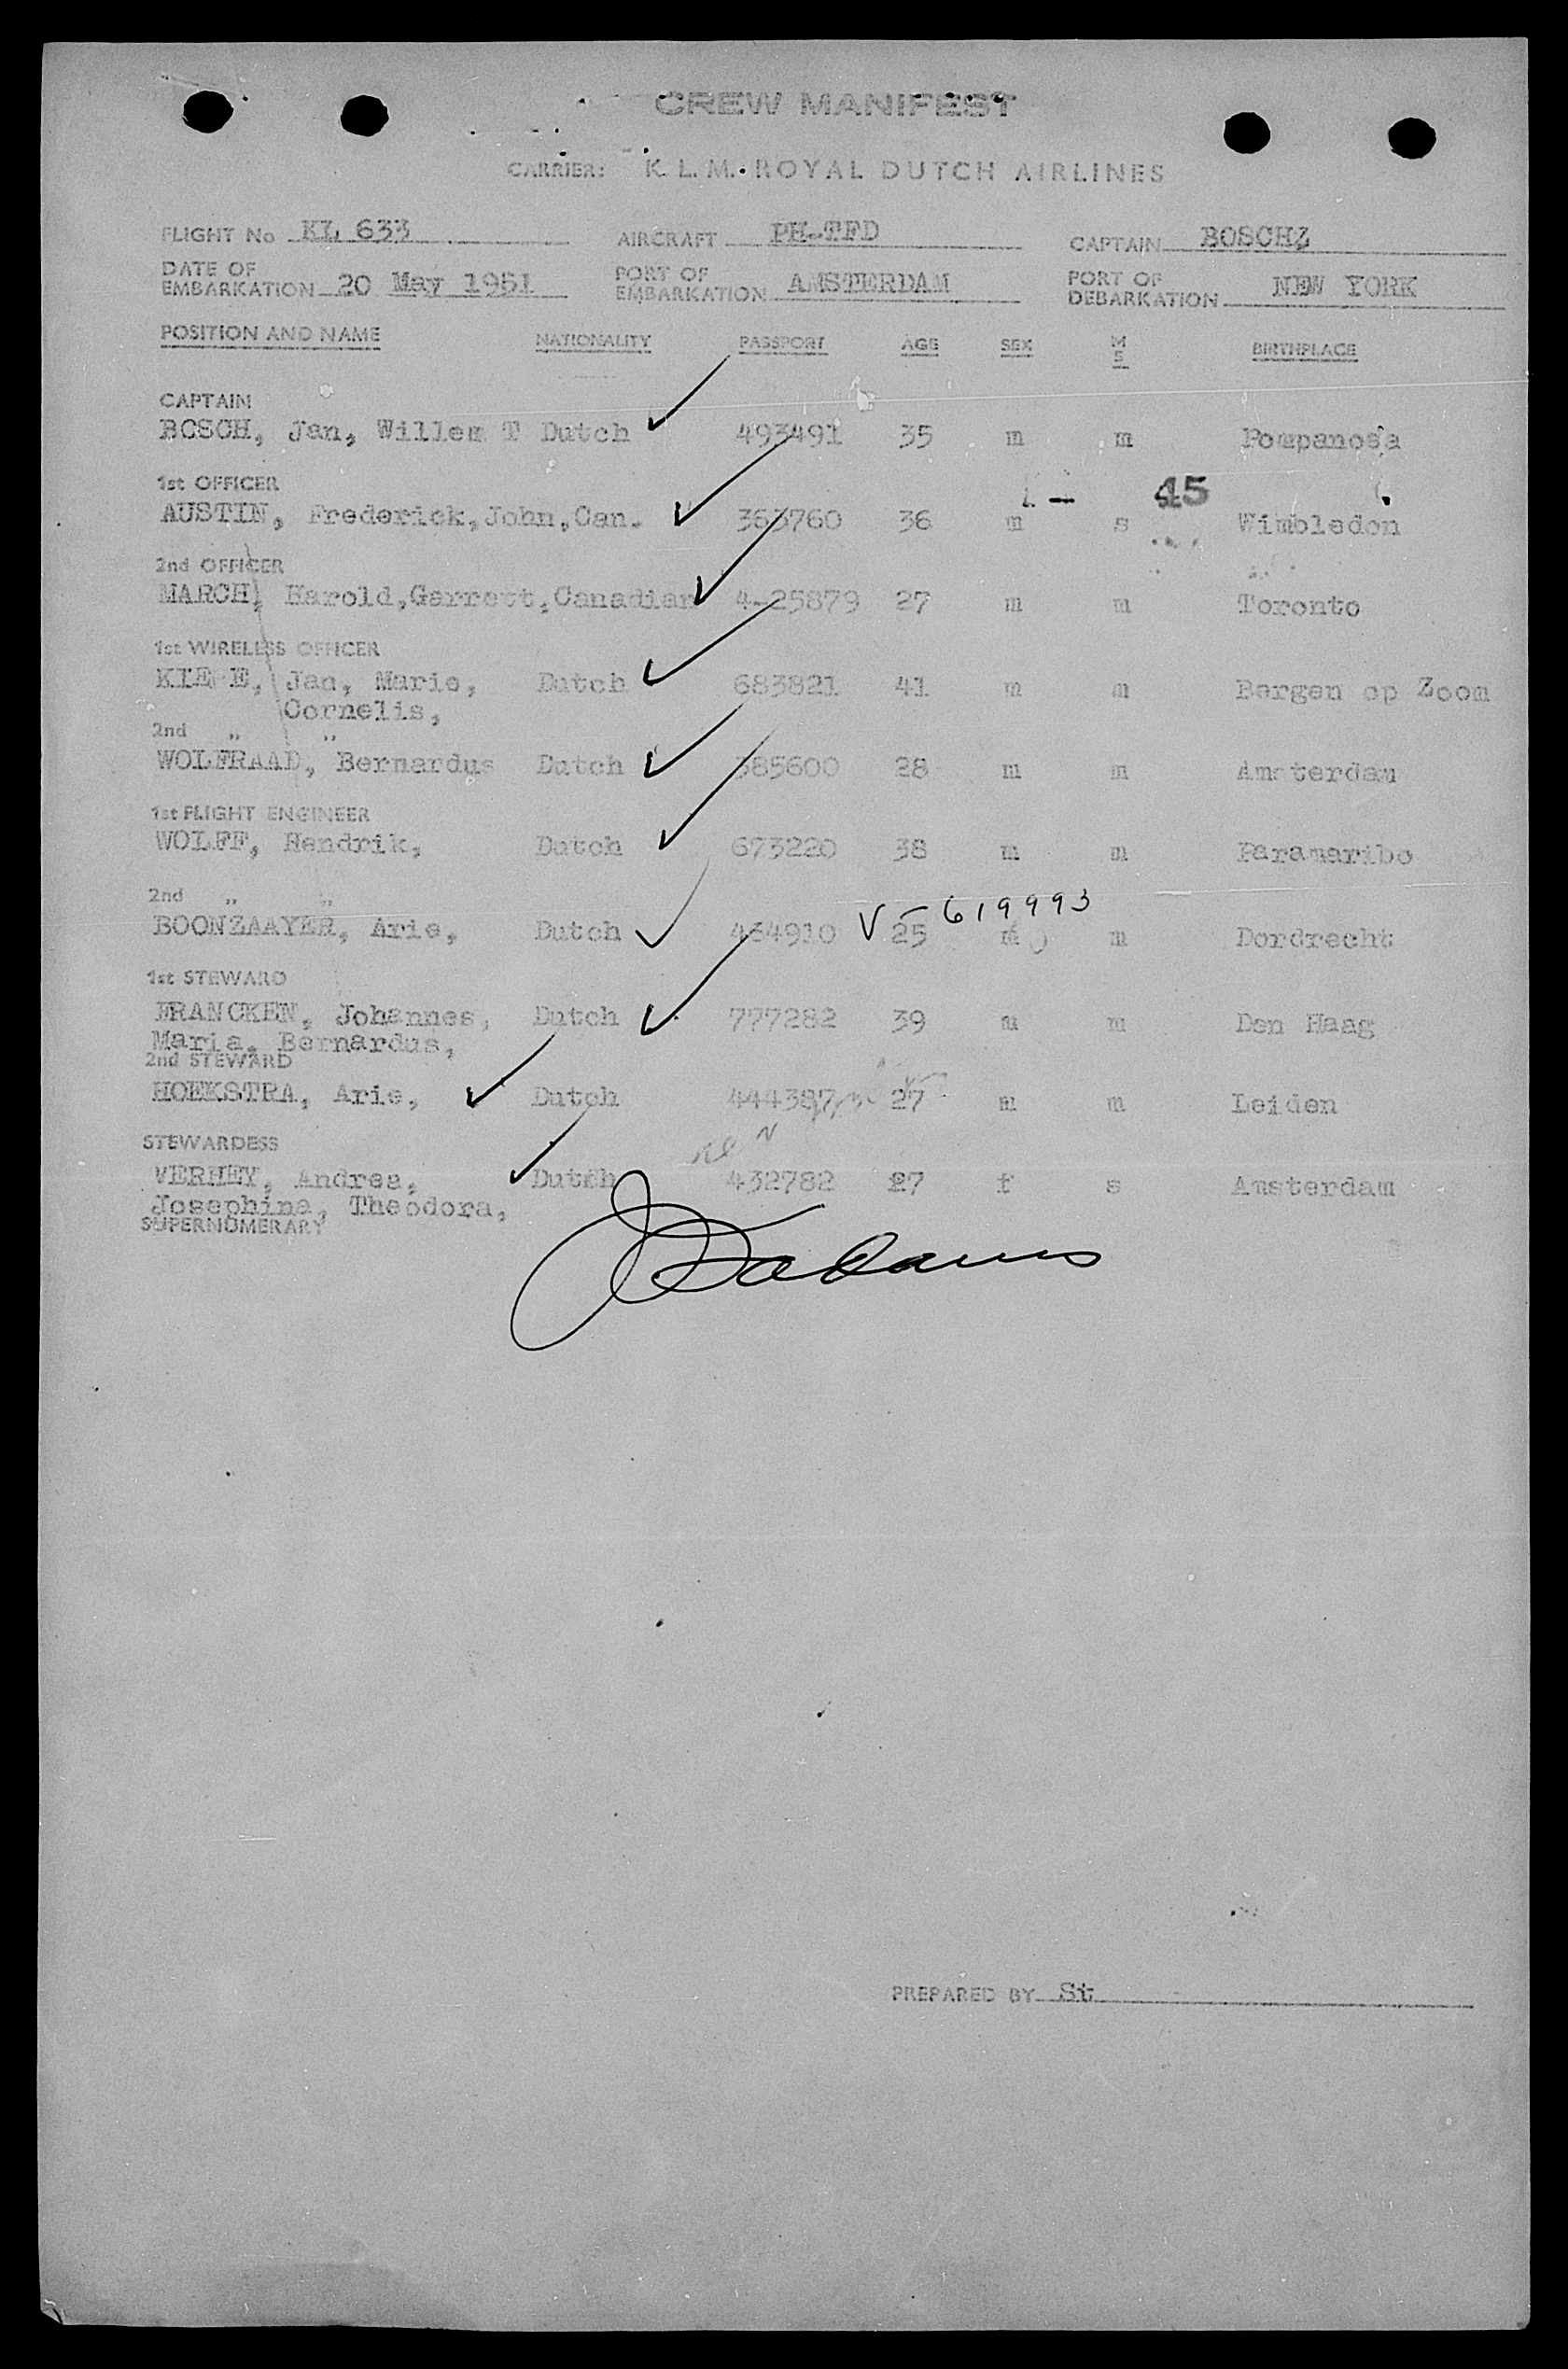 CREW MANIFEST
CARRIER: K. L. M. ROYAL DUTCH AIRLINES
FLIGHT No KL 633 AIRCRAFT PH-TFD CAPTAIN BOSCH
DATE OF EMBARKATION 20 May 1951 PORT OF EMBARKATION AMSTERDAM PORT OF DEBARKATION NEW YORK
POSITION AND NAME NATIONALITY PASSPORT AGE SEX M S BIRTHPLACE
CAPTAIN
BOSCH, Jan, Willem T Dutch 493491 35 m m
1st OFFICER 45
AUSTIN, Frederick,John,Can. 363760 36 m s Wimbledon
2nd OFFICER
MARCH, Harold,Garrett,Canadian 4-25879 27 m m Toronto
1st WIRELESS OFFICER
Jan, Marie, Dutch 683821 41 m m Bergen op Zoom
Cornelis,
2nd " "
WOLFRAAD, Bernardus Dutch 385600 28 m m Amsterdam
1st FLIGHT ENGINEER
WOLFF, Hendrik, Dutch 673220 38 m m Paramaribo
2nd " " V-619993
BOONZAAYER, Arie, Dutch 464910 25 m m Dordrecht
1st STEWARD
FRANCKEN, Johannes, Dutch 777282 39 m m Den Haag
Maria, Bernardus,
2nd STEWARD
HOEKSTRA, Arie, Dutch 444387 27 m m Leiden
STEWARDESS
VERHEY, Andrea, Dutch 432782 27 f s Amsterdam
Josephina, Theodora,
SUPERNUMERARY
PREPARED BY St